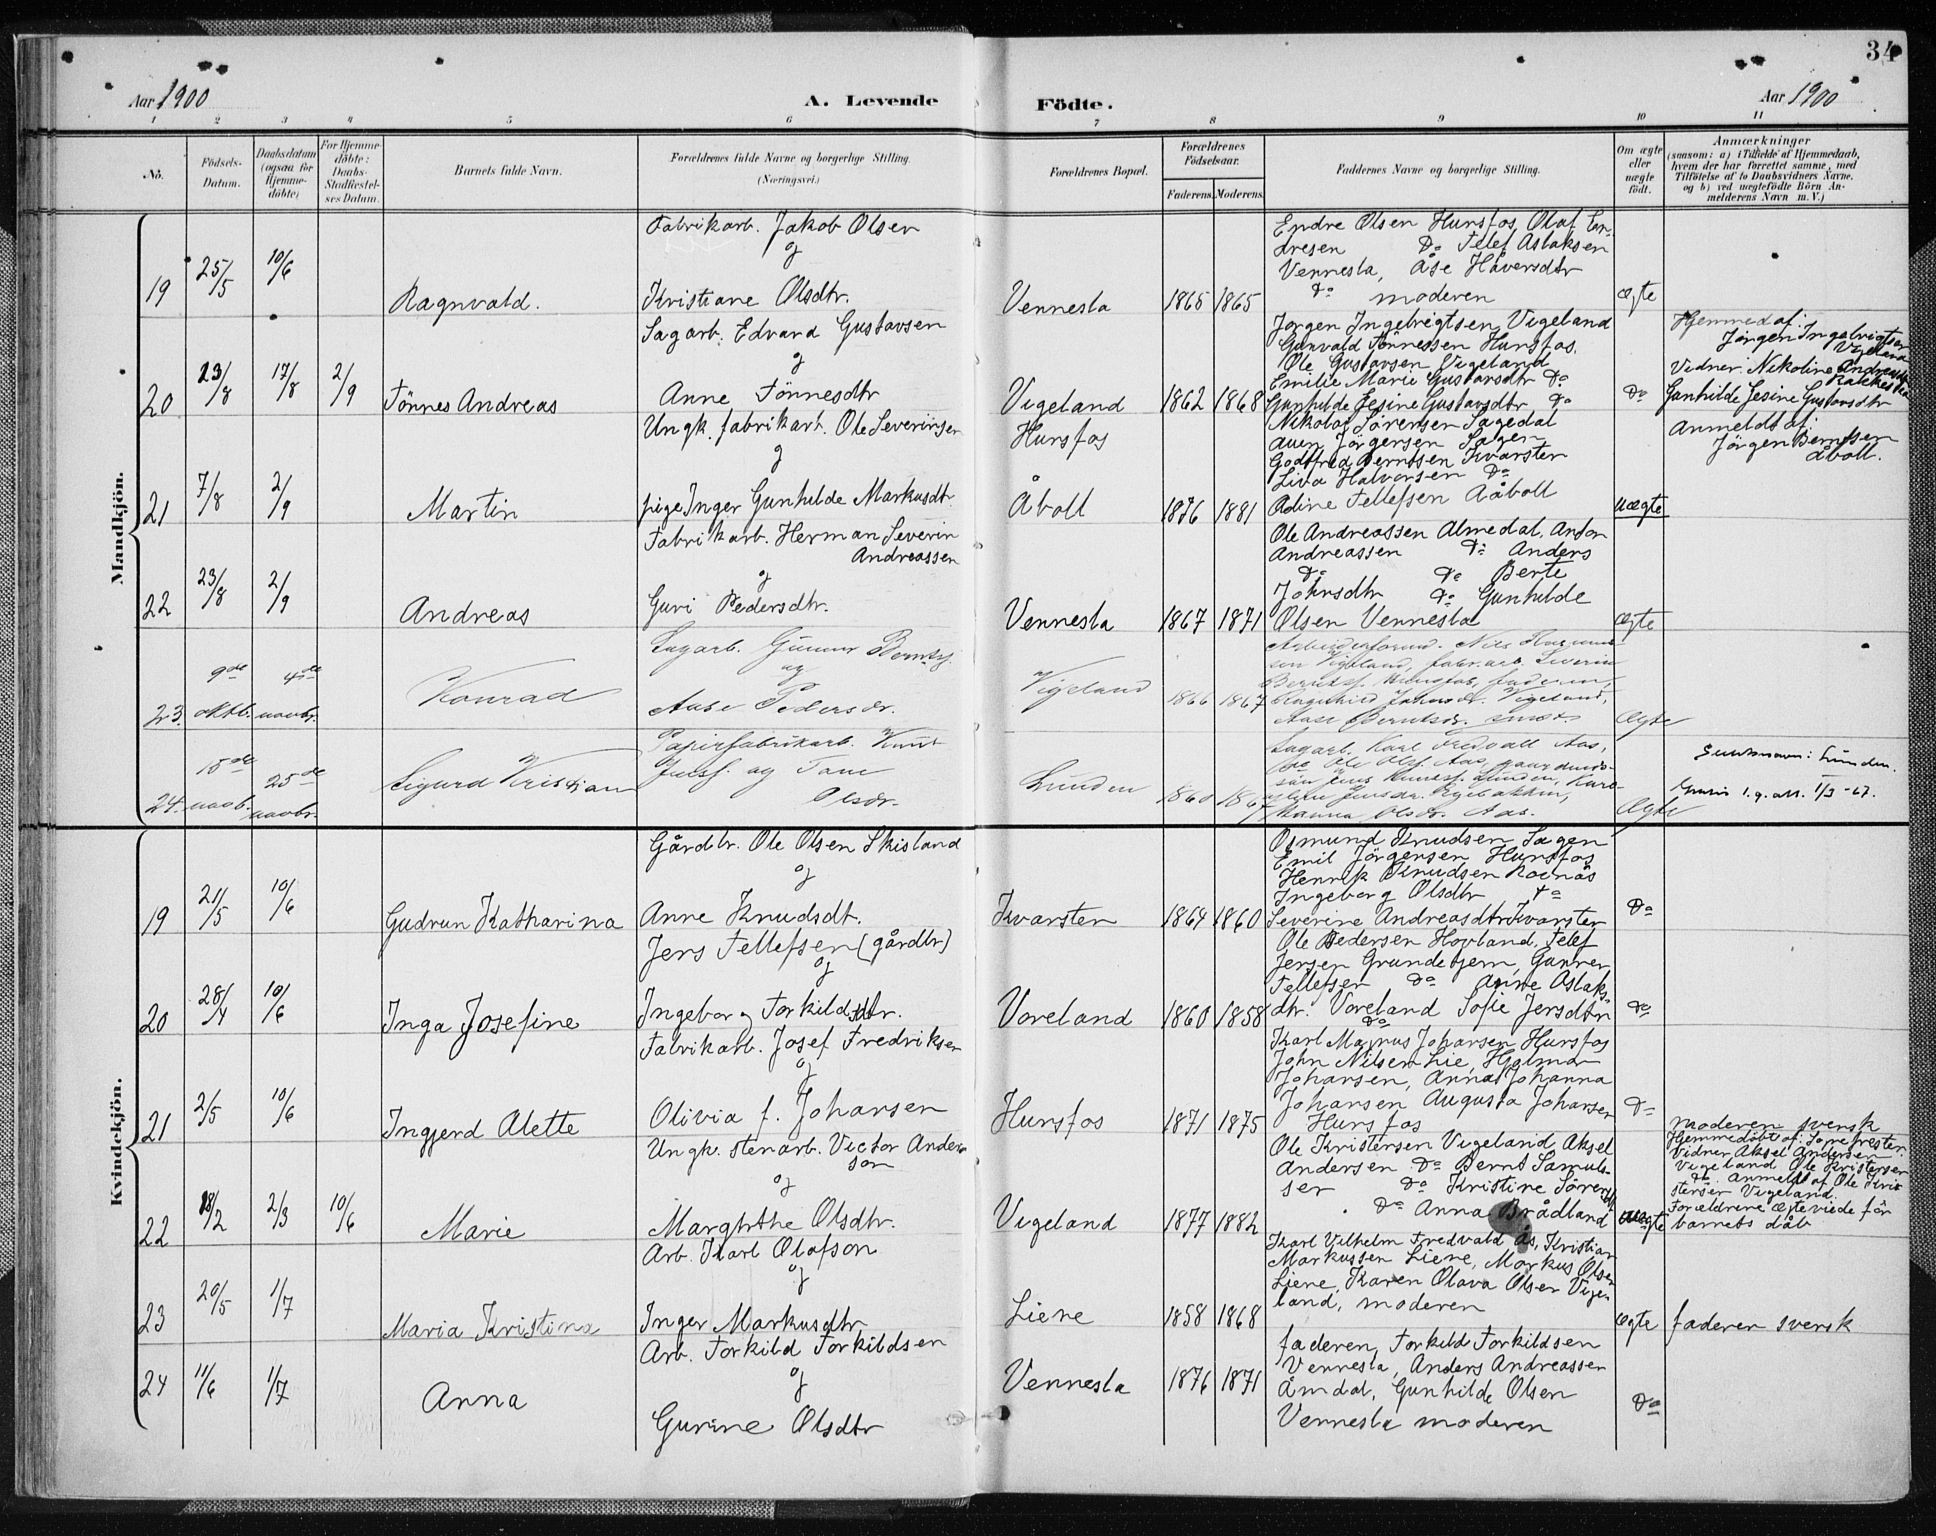 34
Aar 1900
A. Levende Födte.
Aar 1900
1 2 3 4 5 6 7 8 9 10 11
No.
Födsels-
Datum.
Daabsdatum
(ogsaa for
Hjemme-
döbte)
For Hjemme-
döbte:
Daabs-
Stadfæstel-
ses Datum.
Barnets fulde Navn.
Forældrenes fulde Navne og borgerlige Stilling.
(Næringsvei.)
Forældrenes Bopæl.
Forældrenes
Födselsaar.
Faderens. Moderens.
Faddernes Navne og borgerlige Stilling.
Om ægte
eller
uægte
født.
Anmærkninger
(saasom: a) i Tilfælde af Hjemmedaab,
hvem der har forrettet samme, med
Tilföielse af to Daabsvidners Navne,
og b) ved uægtefödte Börn An-
melderens Navn m. V.)
Mandkjön.
19 25/5 10/6 Ragnvald.
Fabrikarb. Jakob Olsen
og
Kristiane Olsdtr.
Vennesla 1865 1865
Endre Olsen Hunsfos, Olaf En-
dresen Do Tellef Aslaksen
Vennesla, Åse Håversdtr
Do moderen
ægte
20 23/8 17/8 2/9 Tönnes Andreas
Sagarb. Edvard Gustavsen
og
Anne Tönnesdtr
Vigeland 1862 1868
Jörgen Ingebrigtsen Vigeland
Gunvald Tönnessen Hunsfos,
Ole Gustavsen Vigeland
Emilie Marie Gustavsdtr Do
Gunhilde Jesine Gustavsdtr Do
Do
Hjemmed af:
Jörgen Ingebrigtsen
Vigeland
Vidner Nikoline Andreasdtr
Gunhilde Jesine Gustavsdtr
21 7/8 2/9 Martin
Ungk. fabrikarb. Ole Severinsen
og
pige Inger Gunhilde Markusdtr
Hunsfos
Åboll 1876 1881
Nikolai Sörensen Sagedal
Auen Jörgensen Sagen
Godtfred Berntsen Kvarsten
Liva Halvorsen Do
Adine Tellefsen Aåboll
uægte
Anmeldt af
Jörgen Berntsen
Åboll.
22 23/8 2/9 Andreas
Fabrikarb. Herman Severin
Andreassen
og
Guri Pedersdtr.
Vennesla 1867 1871
Ole Andreassen Almedal, Anton
Andreassen Do Anders
Do Do Berte
Johnsdtr Do Gunhilde
Olsen Vennesla
ægte
23. 9de oktb. 4de novbr. Konrad
Sagarb. Gunnar Berntsf.
og
Aase Pedersdr.
Vigeland 1866 1867
Vigeland, fabr.arb. Severin
Berntsf. Hunsfos, faderen,
Ragnhild Johnsdr. Vigeland,
Aase Berntsdr.
Ægte
24. 15de novb. 25de novbr. Sigurd Kristian
Papirfabrikarb. Knut
Jensf. og Tone
Olsdr.
Lunden 1860 1867
Sagarb. Karl Fredvall Aas,
Ole Olsf. Aas, gaardmands-
sön Jens Knutsf. Lunden, Karo-
Hanna Olsdr. Aas.
Ægte
Lunden.
1/3 -67.
Kvindekjön.
19 21/5 10/6 Gudrun Katharina
Gårdbr. Ole Olsen Skisland
og
Anne Knudsdt.
Kvarsten 1864 1860
Osmund Knudsen Sagen
Emil Jörgensen Hunsfos
Henrik Knudsen Rosnäs
Ingeborg Olsdtr Do
Severine Andreasdtr Kvarsten
Do
20 28/4 10/6 Inga Josefine
Jens Tellefsen (gårdbr)
og
Ingeborg Torkildsdtr.
Voreland 1860 1858
Ole Pedersen Hovland, Tellef
Jensen Grundetjern, Gunner
Tellefsen Do Anne Aslaks-
dtr. Voreland Sofie Jensdtr
Do
Do
21 2/5 10/6 Ingjerd Alette
Fabrikarb. Josef Fredriksen
og
Olivia f. Johansen
Hunsfos 1871 1875
Karl Magnus Johansen Hunsfos
John Nilsen Lie, Hjalmar
Johansen, Anna Johanna
Johansen Augusta Johansen
Hunsfos
Do
22 18/2 2/3 10/6 Marie
Ungk. stenarb. Victor Ander-
son
og
Marghthe Olsdtr.
Vigeland 1877 1882
Ole Kristensen Vigeland Aksel
Andersen Do Bernt Samuel-
sen Do Kristine Sörensdtr
Do Anna Brådland
uægte
moderen svensk
Hjemmedöbt af:
Vidner Aksel Andersen
Vigeland Ole Kristensen
Do. anmeldt af Ole Kri-
stensen Vigeland.
Forældrene ægteviede før
barnets dåb
23 20/5 1/7 Maria Kristina
Arb. Karl Olafson
og
Inger Markusdtr
Liene 1858 1868
Karl Vilhelm Fredvald Ås, Kristian
Markussen Liene, Markus Olsen
Liene, Karen Olava Olsen Vige-
land, moderen
ægte
faderen svensk
24 11/6 1/7 Anna
Arb. Torkild Torkildsen
og
Gurine Olsdtr
Vennesla 1876 1871
faderen, Torkild Torkildsen
Vennesla, Anders Andreassen
Åmdal, Gunhilde Olsen
Vennesla moderen
Do